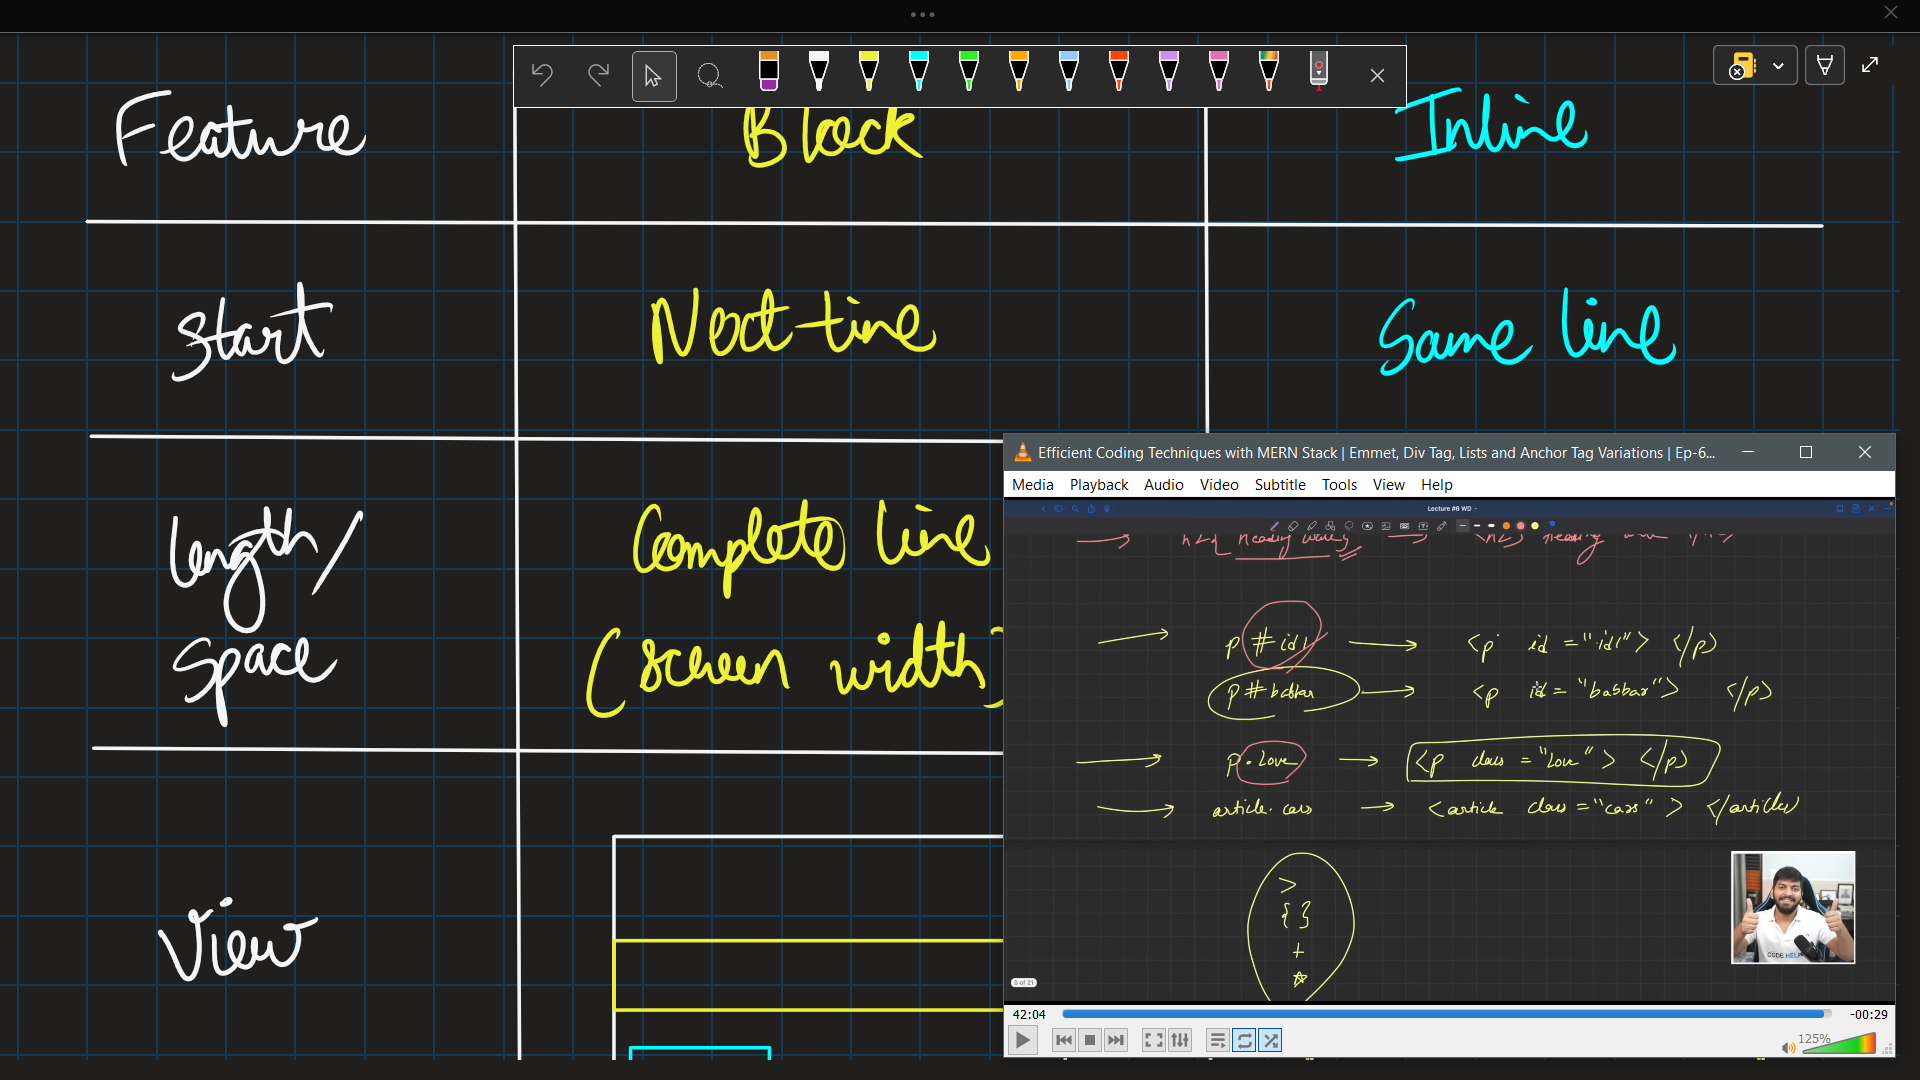 Feature Block Inline
Start Next line Same line
Length/ Complete line
Space (screen width)
View
Efficient Coding Techniques with MERN Stack | Emmet, Div Tag, Lists and Anchor Tag Variations | Ep-6...
Media Playback Audio Video Subtitle Tools View Help
Lecture #6 WD
p #id1 <p id="id1"> </p>
p#babbar <p id="babbar"> </p>
p.love <p class="love"> </p>
article.cars <article class="cars"> </article>
>
{ }
+
*
CODE HELP
5 of 21
42:04 -00:29
125%